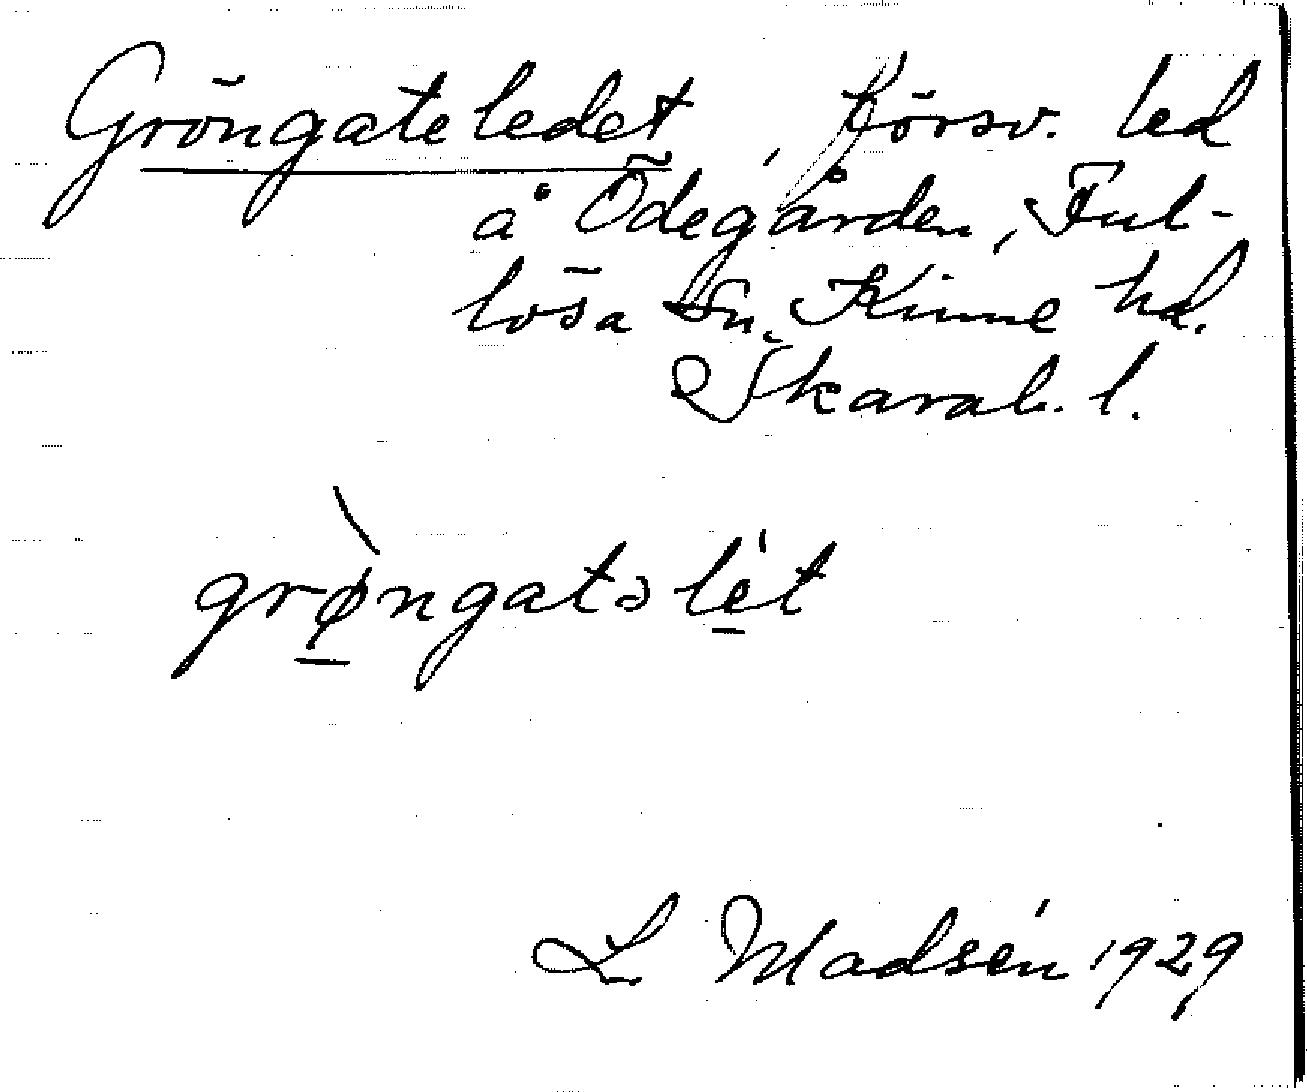 Gröngateledet, försv. led
å Ödegården, Ful-
lösa sn. Kinne hd.
Skarab. l.
grøngatəlet
L Madsén 1929